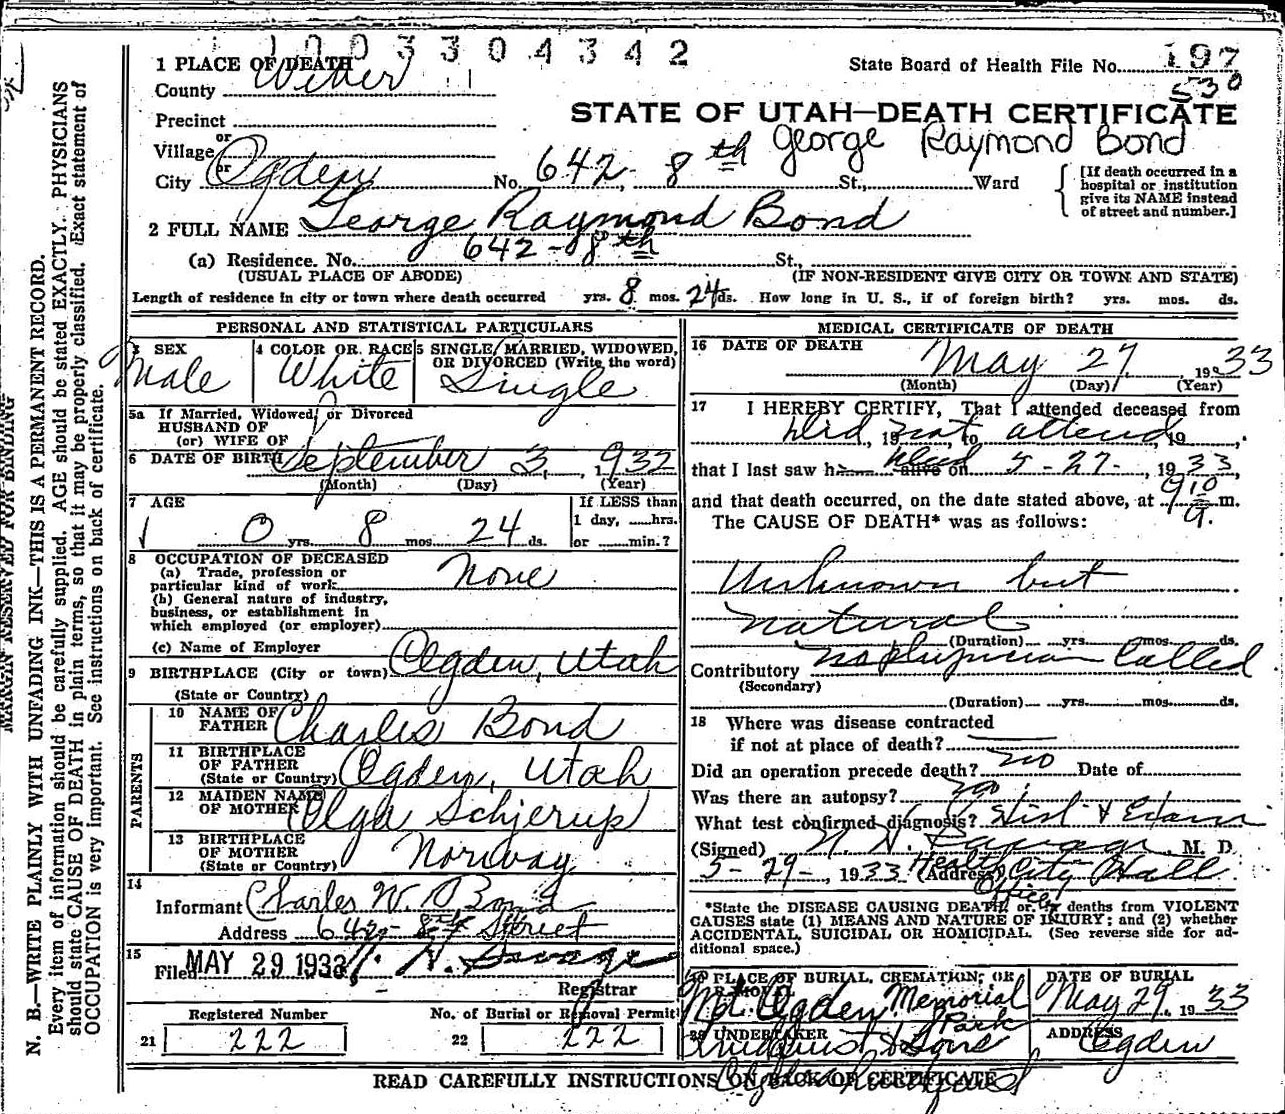 1003304342
1 PLACE OF DEATH
County Weber
State Board of Health File No. 197
530
STATE OF UTAH—DEATH CERTIFICATE
Precinct
or
Village
or
City Ogden No. 642 - 8th St., Ward
George Raymond Bond
[If death occurred in a hospital or institution give its NAME instead of street and number.]
2 FULL NAME George Raymond Bond
(a) Residence. No. 642 - 8th St.,
(USUAL PLACE OF ABODE) (IF NON-RESIDENT GIVE CITY OR TOWN AND STATE)
Length of residence in city or town where death occurred yrs. 8 mos. 24 ds. How long in U. S., if of foreign birth? yrs. mos. ds.
PERSONAL AND STATISTICAL PARTICULARS
3 SEX Male
4 COLOR OR RACE White
5 SINGLE, MARRIED, WIDOWED, OR DIVORCED (Write the word) Single
5a If Married, Widowed, or Divorced
HUSBAND OF
(or) WIFE OF
6 DATE OF BIRTH September 3, 1932
(Month) (Day) (Year)
7 AGE
0 yrs. 8 mos. 24 ds.
If LESS than
1 day, hrs.
or min.?
8 OCCUPATION OF DECEASED
(a) Trade, profession or particular kind of work None
(b) General nature of industry, business, or establishment in which employed (or employer)
(c) Name of Employer
9 BIRTHPLACE (City or town) Ogden, Utah
(State or Country)
PARENTS
10 NAME OF FATHER Charles Bond
11 BIRTHPLACE OF FATHER (State or Country) Ogden, Utah
12 MAIDEN NAME OF MOTHER Olga Schjerup
13 BIRTHPLACE OF MOTHER (State or Country) Norway
14 Informant Charles W. Bond
Address 642 - 8th Street
15 Filed MAY 29 1933 N. Savage
Registrar
Registered Number
21 222
No. of Burial or Removal Permit
22 222
MEDICAL CERTIFICATE OF DEATH
16 DATE OF DEATH May 27, 1933
(Month) (Day) (Year)
17 I HEREBY CERTIFY, That I attended deceased from
Did, 19 not, to attend, 19
that I last saw h alive on dead 5-27-, 1933,
and that death occurred, on the date stated above, at 910 a. m.
The CAUSE OF DEATH* was as follows:
Unknown but
natural
(Duration) yrs. mos. ds.
Contributory no physician called
(Secondary)
(Duration) yrs. mos. ds.
18 Where was disease contracted
if not at place of death?
Did an operation precede death? no Date of
Was there an autopsy? no
What test confirmed diagnosis? Hist & Exam
(Signed) N. N. Savage, M. D.
5-29-, 1933 (Address) City Hall
Health Officer
*State the DISEASE CAUSING DEATH or in deaths from VIOLENT
CAUSES state (1) MEANS AND NATURE OF INJURY; and (2) whether
ACCIDENTAL, SUICIDAL OR HOMICIDAL. (See reverse side for ad-
ditional space.)
PLACE OF BURIAL, CREMATION, OR
Mt. Ogden Memorial Park
DATE OF BURIAL
May 29, 1933
20 UNDERTAKER
& Sons
ADDRESS
Ogden
READ CAREFULLY INSTRUCTIONS ON BACK OF CERTIFICATE
MARGIN RESERVED FOR BINDING
N. B.—WRITE PLAINLY WITH UNFADING INK—THIS IS A PERMANENT RECORD.
Every item of information should be carefully supplied. AGE should be stated EXACTLY. PHYSICIANS
should state CAUSE OF DEATH in plain terms, so that it may be properly classified. Exact statement of
OCCUPATION is very important. See instructions on back of certificate.